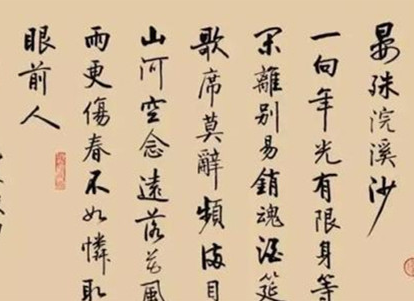 晏殊浣溪沙
一向年光有限身等
閑離别易銷魂酒筵
歌席莫辭頻滿目
山河空念遠落花風
雨更傷春不如憐取
眼前人